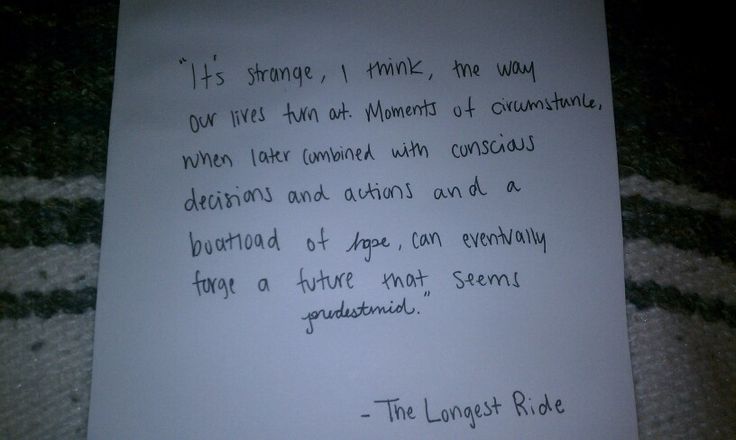 "It's strange, I think, the way
our lives turn out. Moments of circumstance,
when later combined with conscious
decisions and actions and a
boatload of hope, can eventually
forge a future that seems
predestined."
- The Longest Ride